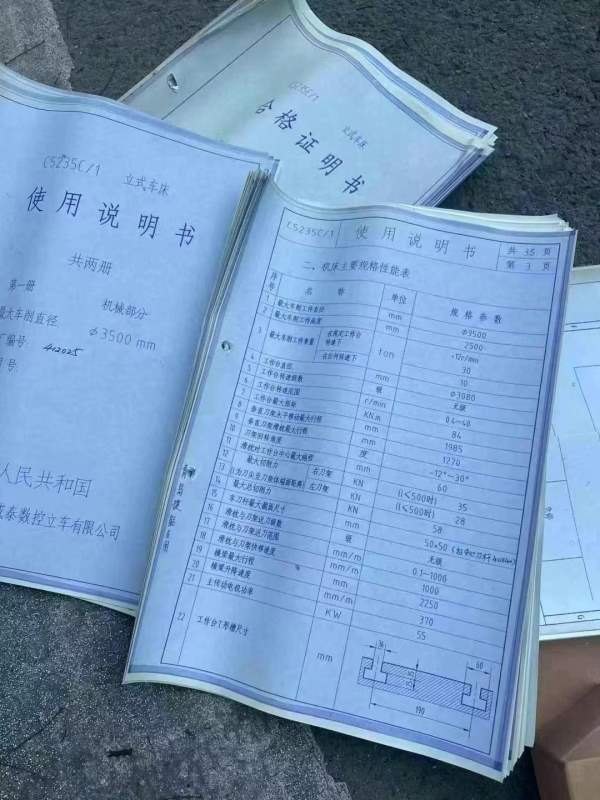 C5235C/1
立式车床
合格证明书
C5235C/1 立式车床
使用说明书
共两册
第一册 机械部分
大车削直径 φ3500mm
编号 412025
号:
人民共和国
泰数控立车有限公司
C5235C/1 使用说明书 共 35 页
第 3 页
二、机床主要规格性能表
序号 名称 单位 规格参数
1 最大车削工件直径 mm φ3500
2 最大车削工件高度 mm 2500
3 最大车削工件重量 在规定工作台转速下 ton <12r/min 30
在任何转速下 10
4 工作台直径 mm φ3080
5 工作台转速级数 级 无级
6 工作台转速范围 r/min 0.4~40
7 工作台最大扭矩 KN.m 84
8 垂直刀架水平移动最大行程 mm 1985
9 垂直刀架滑枕最大行程 mm 1270
10 刀架回转角度 度 -12°~30°
11 滑枕过工作台中心最大偏移 mm 60
12 最大切削力 右刀架 KN (l≤500时) 35
13 左刀架 KN (l≤500时) 28
14 最大总切削力 KN 58
15 车刀杆最大截面尺寸 mm 50×50
16 滑枕与刀架进刀级数 级 无级
17 滑枕与刀架进刀范围 mm/m 0.1-1000
18 滑枕与刀架快移速度 mm/m 1000
19 横梁最大行程 mm 2250
20 横梁升降速度 mm/m 370
21 主传动电机功率 KW 55
22 工作台T形槽尺寸 mm
36 60
190